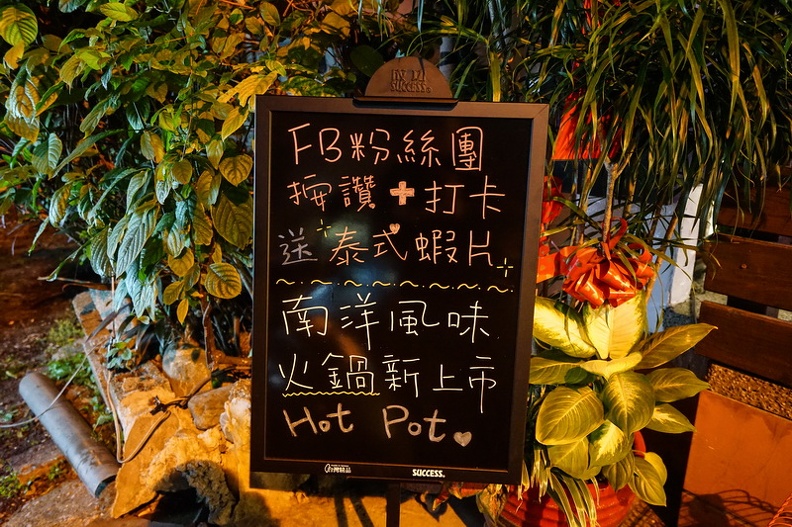 成功
SUCCESS
FB粉絲團
按讚+打卡
送泰式蝦片
南洋風味
火鍋新上市
Hot Pot
SUCCESS